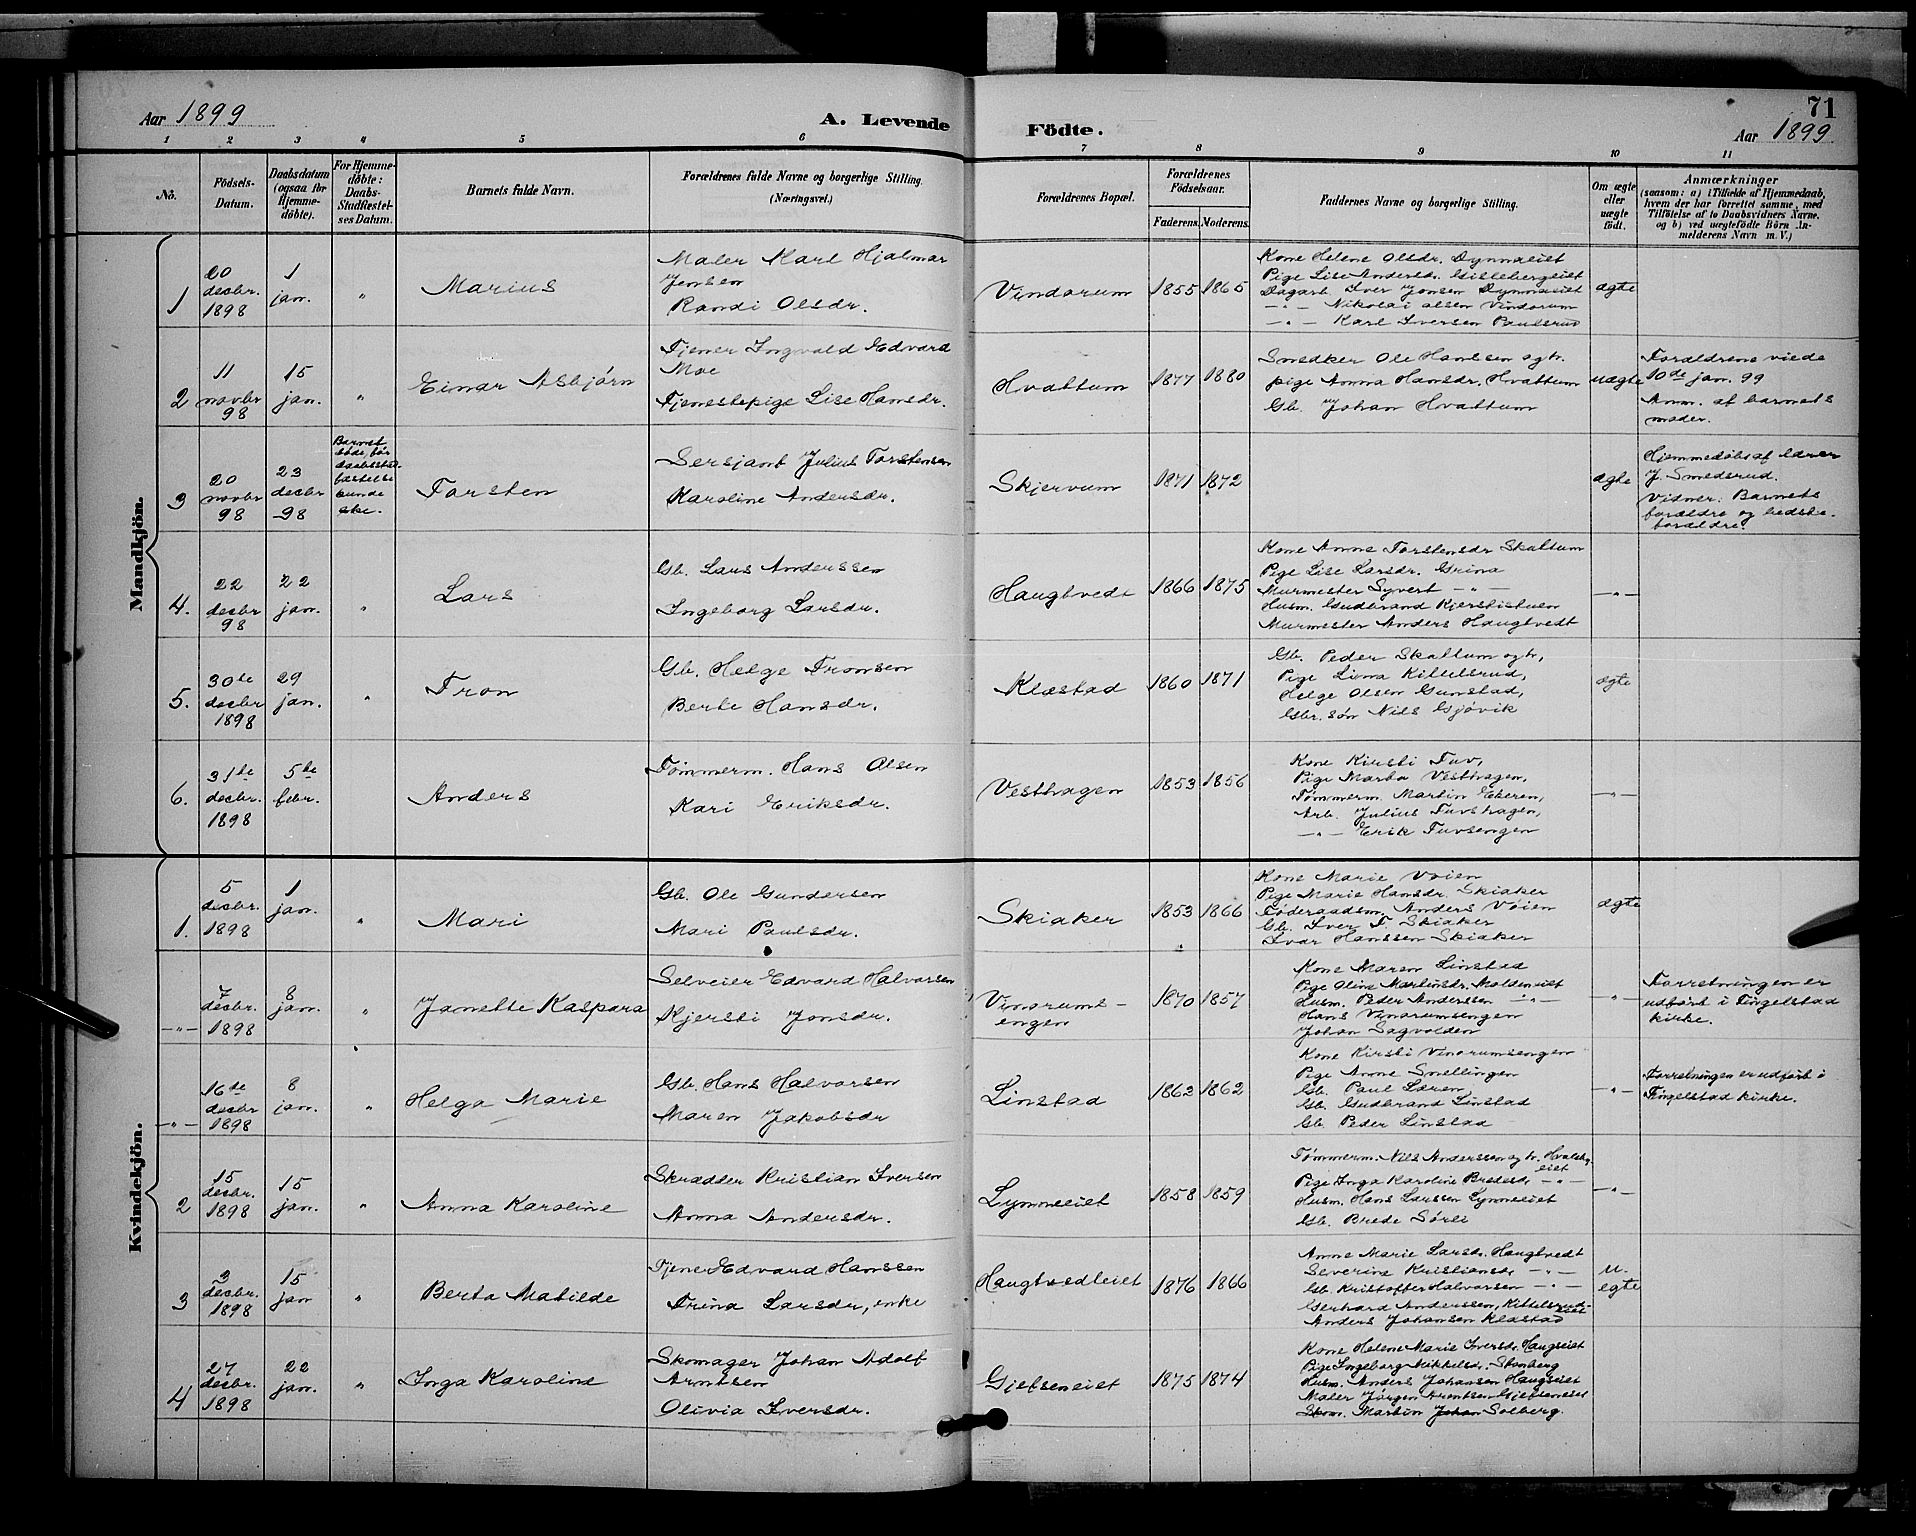 71
Aar 1899
A. Levende
Födte.
Aar 1899
1 2 3 4 5 6 7 8 9 10 11
No.
Födsels-
Datum.
Daabsdatum
(ogsaa for
Hjemme-
döbte).
For Hjemme-
döbte:
Daabs-
Stadfæstel-
ses Datum.
Barnets fulde Navn.
Forældrenes fulde Navne og borgerlige Stilling.
(Næringsvei.)
Forældrenes Bopæl.
Forældrenes
Födselsaar.
Faderens. Moderens.
Faddernes Navne og borgerlige Stilling.
Om ægte
eller
uægte
födt.
Anmærkninger
(saasom: a) i Tilfælde af Hjemmedaab,
hvem der har forrettet samme, med
Tilföielse af to Daabsvidners Navne.
og b) ved uægtefödte Börn An-
melderens Navn m. V.)
Mandkjön.
1
20
decbr.
1898
1
jan.
"
Marius
Maler Karl Hjalmar
Jensen
Randi Olsdr.
Vindorum
1855 1865
Kone Helene Olsdr. Dynnaeiet
Pige Lise Andersdr. Gislebergeiet
Dagarb. Iver Jensen Dynnaeiet
—"— Nikolai Olsen Vindorum
—"— Karl Iversen Paulsrud
ægte
2
11
novbr
98
15
jan.
"
Einar Asbjørn
Tjener Ingvald Edvard
Moe
Tjenestepige Lise Hansdr.
Hvattum
1877 1880
Snedker Ole Hansen og h.
pige Anna Hansdr. Hvattum
Gb. Johan Hvattum
uægte
Forældrene viede
10de jan. 99
Anm. af barnets
moder.
3
20
novbr
98
23
decbr
98
Barnet
døde, før
daabsstad-
fæstelse
kunde
ske.
Torsten
Sersjant Julius Torstensen
Karoline Andersdr.
Skjervum
1871 1872
ægte
Hjemmedøbt af lærer
J. Smedsrud.
Vidner: Barnets
forældre og bedste-
forældre.
4.
22
decbr
98
22
jan.
"
Lars
Gb. Lars Anderssen
Ingeborg Larsdr.
Haugtvedt
1866 1875
Kone Anne Torstensdr Skattum
Pige Lise Larsdr. Grina
Murmester Syvert —"—
Husm. Gudbrand Kjerstistuen
Murmester Anders Haugtvedt
—"—
5.
30te
decbr
1898
29
jan.
"
Tron
Gb. Helge Tronsen
Berte Hansdr.
Klæstad
1860 1871
Gb. Peder Skattum og h.,
Pige Lina Kittelsrud,
Helge Olsen Gunstad,
Gbr. søn Nils Gjøvik
ægte
6.
31te
decbr.
1898
5te
febr.
Anders
Tømmerm. Hans Olsen
Kari Eriksdr.
Vesthagen
1853 1856
Kone Kirsti Tuv,
Pige Marta Vesthagen,
Tømmerm. Martin Ekeren,
Arb. Julius Tuvshagen,
—"— Erik Tuvsengen
—"—
Kvindekjön.
1.
5
decbr.
1898
1
jan.
"
Mari
Gb. Ole Gundersen
Mari Paulsdr.
Skiaker
1853 1866
Kone Marie Vøien
Pige Marie Hansdr. Skiaker
Føderaadsm. Anders Vøien
Gb. Iver T. Skiaker
Ivar Hanssen Skiaker
ægte
—"—
7
decbr.
1898
8
jan.
"
Janette Kaspara
Selveier Edvard Halvorsen
Kjersti Jonsdr.
Vinorums-
engen
1870 1857
Kone Maren Linstad
Pige Oline Martinsdr. Moldeneiet
Husm. Peder Anderssen —"—
Hans Vinorumsengen
Johan Sagvolden
—"—
Forretningen er
udført i Tingelstad
kirke.
—"—
16de
decbr
1898
8
jan.
"
Helga Marie
Gb. Hans Halvorsen
Maren Jakobsdr
Linstad
1862 1862
Kone Kirsti Vinorumsengen
Pige Anne Snellingen
Gb. Paul Læren
Gb. Gudbrand Linstad
Gb. Peder Linstad
—"—
Forretningen er udført i
Tingelstad kirke.
2
15
decbr.
1898
15
jan.
"
Anna Karoline
Skrædder Kristian Iversen
Anna Andersdr.
Lynneeiet
1858 1859
Tømmerm. Nils Anderssen og h. Hvalebyeiet
Pige Inga Karoline Bredesdr. —"—
Husm. Hans Larssen Lynneeiet
Gb. Brede Sørli
—"—
3
3
decbr.
1898
15
jan
"
Berta Matilde
Tjener Edvard Hanssen
Trina Larsdr, enke
Haugtvedteiet
1876 1866
Anne Marie Larsdr. Haugtvedt
Severine Kristiansdr —"—
Gb. Kristoffer Halvorsen —"—
Gerhard Anderssen, Kittelsrud-
eiet
Anders Johansen Klæstad
u-
egte
4
27
decbr.
1898
22
jan.
"
Inga Karoline
Skomager Johan Adolf
Arntsen
Olivia Iversdr.
Gjefseneiet
1875 1874
Kone Helene Marie Iversdr. Haugseiet
Pige Ingeborg Mikkelsdr. Stenberg
Husm. Anders Johansen Haugseiet
Maler Jørgen Arentsen Gjefseneiet
Skom. Martin Johan Solberg.